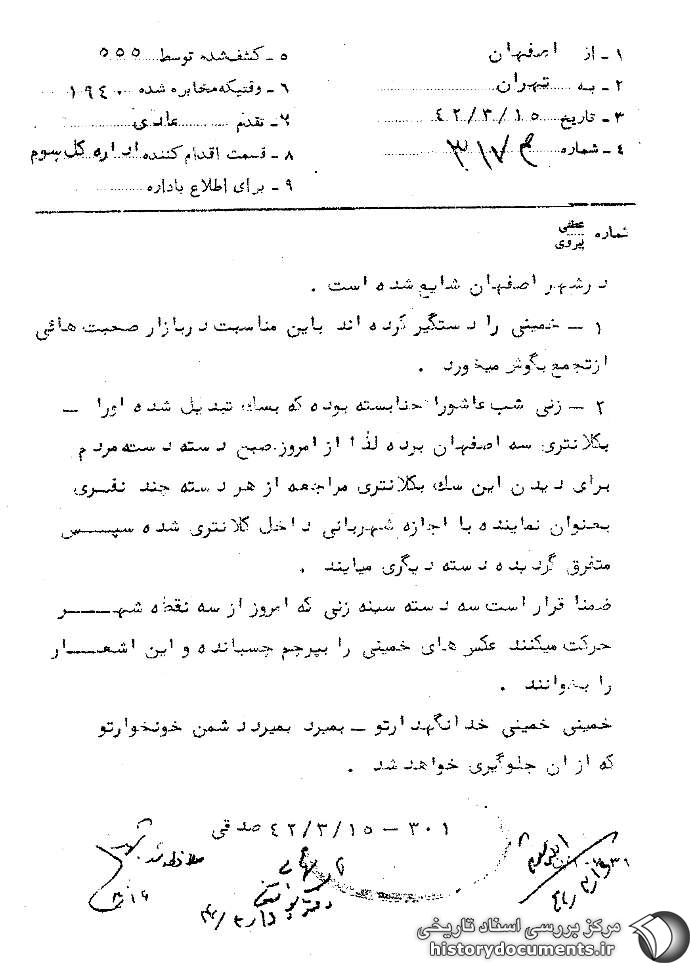 ۱ - از اصفهان
۲ - به تهران
۳ - تاریخ ۴۲/۳/۱۵
۴ - شماره ۳۱۷
۵ - کشف‌شده توسط ۵۵۵
۶ - وقتیکه مخابره شده ۱۹۴۰
۷ - تقدم عادی
۸ - قسمت اقدام کننده اداره کل سوم
۹ - برای اطلاع باداره
شماره عطفی پیروی
در شهر اصفهان شایع شده است .
۱ - خمینی را دستگیر کرده اند باین مناسبت در بازار صحبت هائی
از تجمع بگوش میخورد .
۲ - زنی شب عاشورا حنا بسته بوده که بسگ تبدیل شده اورا -
بکلانتری سه اصفهان برده لذا از امروز صبح دسته دسته مردم
برای دیدن این سگ بکلانتری مراجعه از هر دسته چند نفری
بعنوان نماینده با اجازه شهربانی داخل کلانتری شده سپس
متفرق گردیده دسته دیگری میایند .
ضمنا قرار است سه دسته سینه زنی که امروز از سه نقطه شهر
حرکت میکنند عکس های خمینی را بپرچم چسبانده و این اشعار
را بخوانند .
خمینی خمینی خدا نگهدار تو - بمیرد بمیرد دشمن خونخوار تو
که از ان جلوگیری خواهد شد .
۳۰۱ - ۴۲/۳/۱۵ صدقی
ملاحظه شد
۳/۱۶
مرکز بررسی اسناد تاریخی
historydocuments.ir